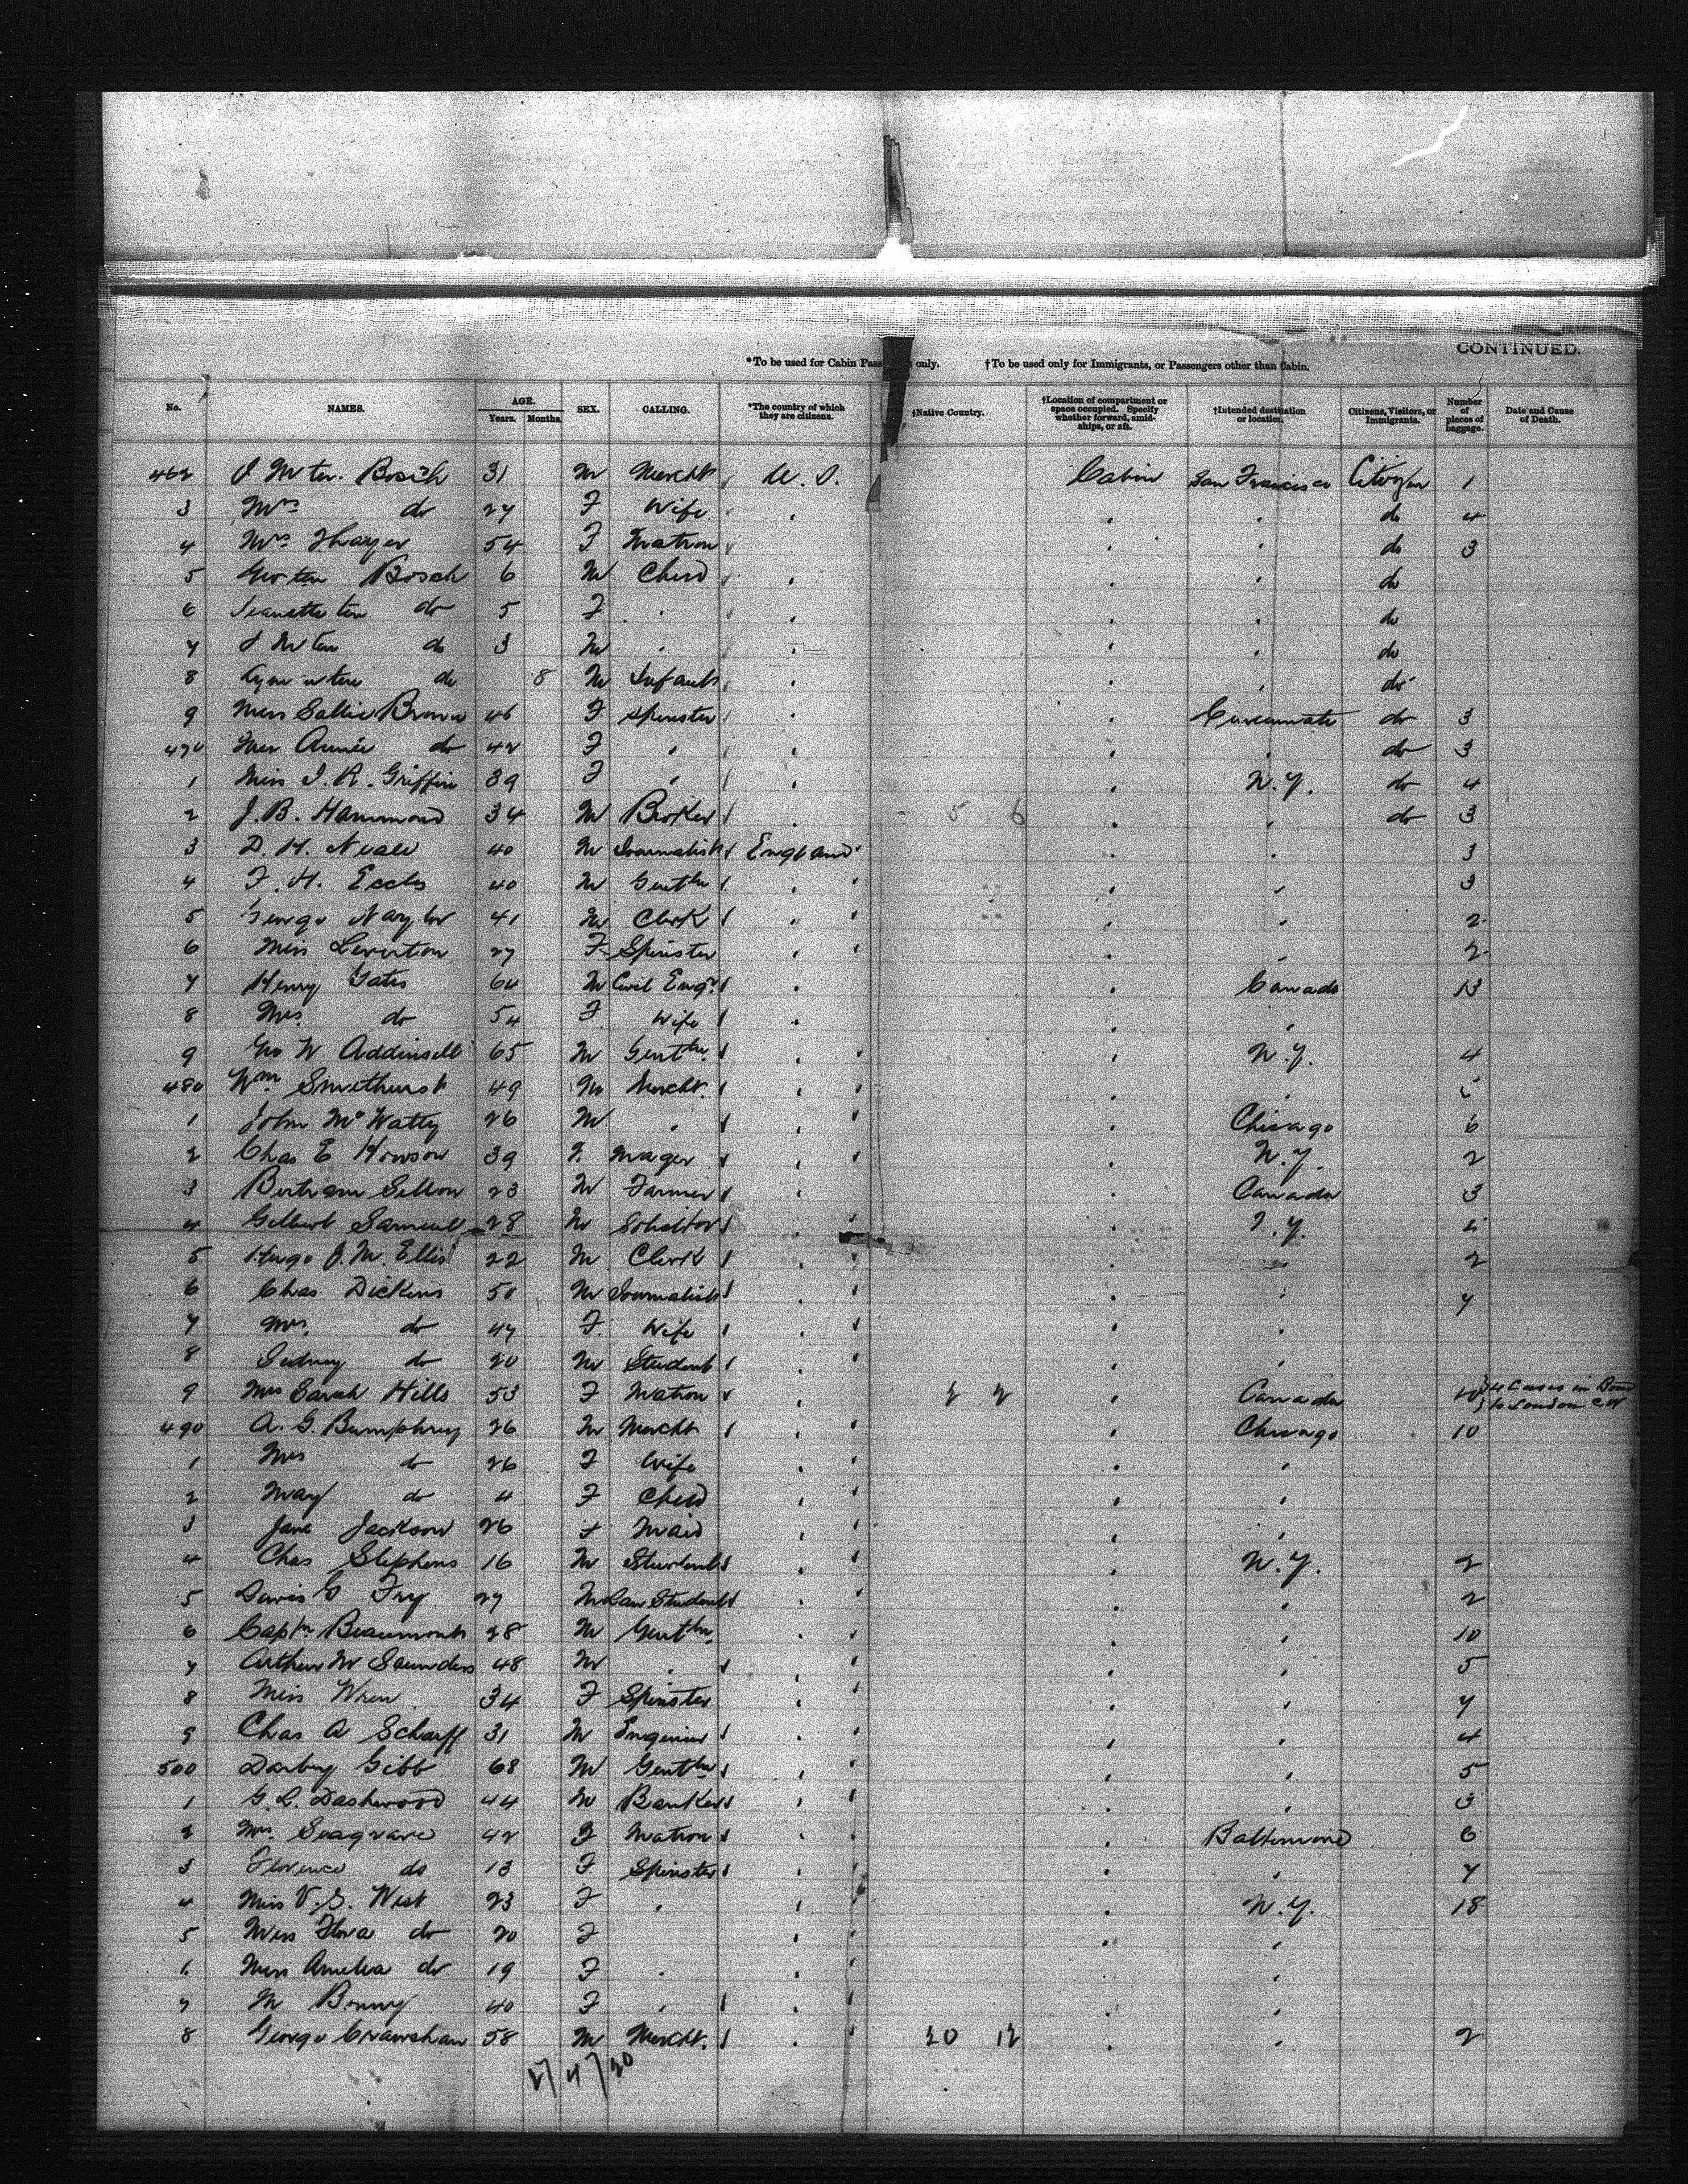 CONTINUED.
*To be used for Cabin Pass only. †To be used only for Immigrants, or Passengers other than Cabin.
No. NAMES. AGE. Years. Months. SEX. CALLING. *The country of which they are citizens. †Native Country. †Location of compartment or space occupied. Specify whether forward, amidships, or aft. †Intended destination or location. Citizens, Visitors, or Immigrants. Number of pieces of baggage. Date and Cause of Death.
462 J M ten Bosch 31 M Mercht U. S. Cabin San Francisco Citizen 1
3 Mrs do 27 F Wife " " " do 4
4 Mrs Thayer 54 F Matron " " do 3
5 Geo ten Bosch 6 M Child " " " do
6 Jeanette ten do 5 F " " " " do
7 J M ten do 3 M " " " " do
8 ten do 8 M Infant " " " do
9 Miss Sallie Brown 46 F Spinster " " Cincinnati do 3
470 Miss Annie do 42 F " " " " do 3
1 Miss J. R. Griffin 39 F " " " N.Y. do 4
2 J. B. Hammond 34 M Broker " 5 6 " " do 3
3 D. H. 40 M Journalist England " " 3
4 F. H. Eccles 40 M Gentln " " " 3
5 George Naylor 41 M Clerk " " " 2
6 Miss Leverton 27 F Spinster " " " 2
7 Henry Yates 64 M Civil Engr " " Canada 13
8 Mrs. do 54 F Wife " " "
9 Geo W Addinsell 65 M Gentln " " N.Y. 4
480 Wm Smethurst 49 M Mercht. " " "
1 John McWatty 26 M " " " Chicago 6
2 Chas E Howson 39 F. Mager " " N.Y. 2
3 Bertram Sellon 23 M Farmer " " Canada 3
4 Gilbert Samuell 28 M Solicitor " " N.Y. 4
5 Hugo J. M. Ellis 22 M Clerk " " " 2
6 Chas Dickens 50 M Journalist " " " 7
7 Mrs. do 47 F. Wife " " "
8 Sidney do 20 M Student " " "
9 Mrs Sarah Hills 53 F Matron " 2 2 " Canada 4 Cases in Bond to London C W
490 A. G. Bumphrey 26 M Mercht " " Chicago 10
1 Mrs do 26 F Wife " " "
2 May do 4 F Child " " "
3 Jane Jackson 26 F Maid " " "
4 Chas Stephens 16 M Student " " N.Y. 2
5 Fry 27 M Law Student " " " 2
6 Captn Beaumont 28 M Gentln. " " " 10
7 Arthur W Saunders 48 M " " " " 5
8 Miss Wren 34 F Spinster " " " 7
9 Chas A Scharff 31 M Engineer " " " 4
500 Darby Gibb 68 M Gentln " " " 5
1 G. L. Dashwood 44 M Banker " " " 3
2 Mrs. Seagrave 42 F Matron " " Baltimore 6
3 Florence do 13 F Spinster " " " 7
4 Miss V. S. West 23 F " " " N.Y. 18
5 Miss Flora do 20 F " " "
6 Miss Amelia do 19 F " " "
7 M Bonny 40 F " " " "
8 George Crawshaw 58 M Mercht. " 20 12 " " 2
27/47/20